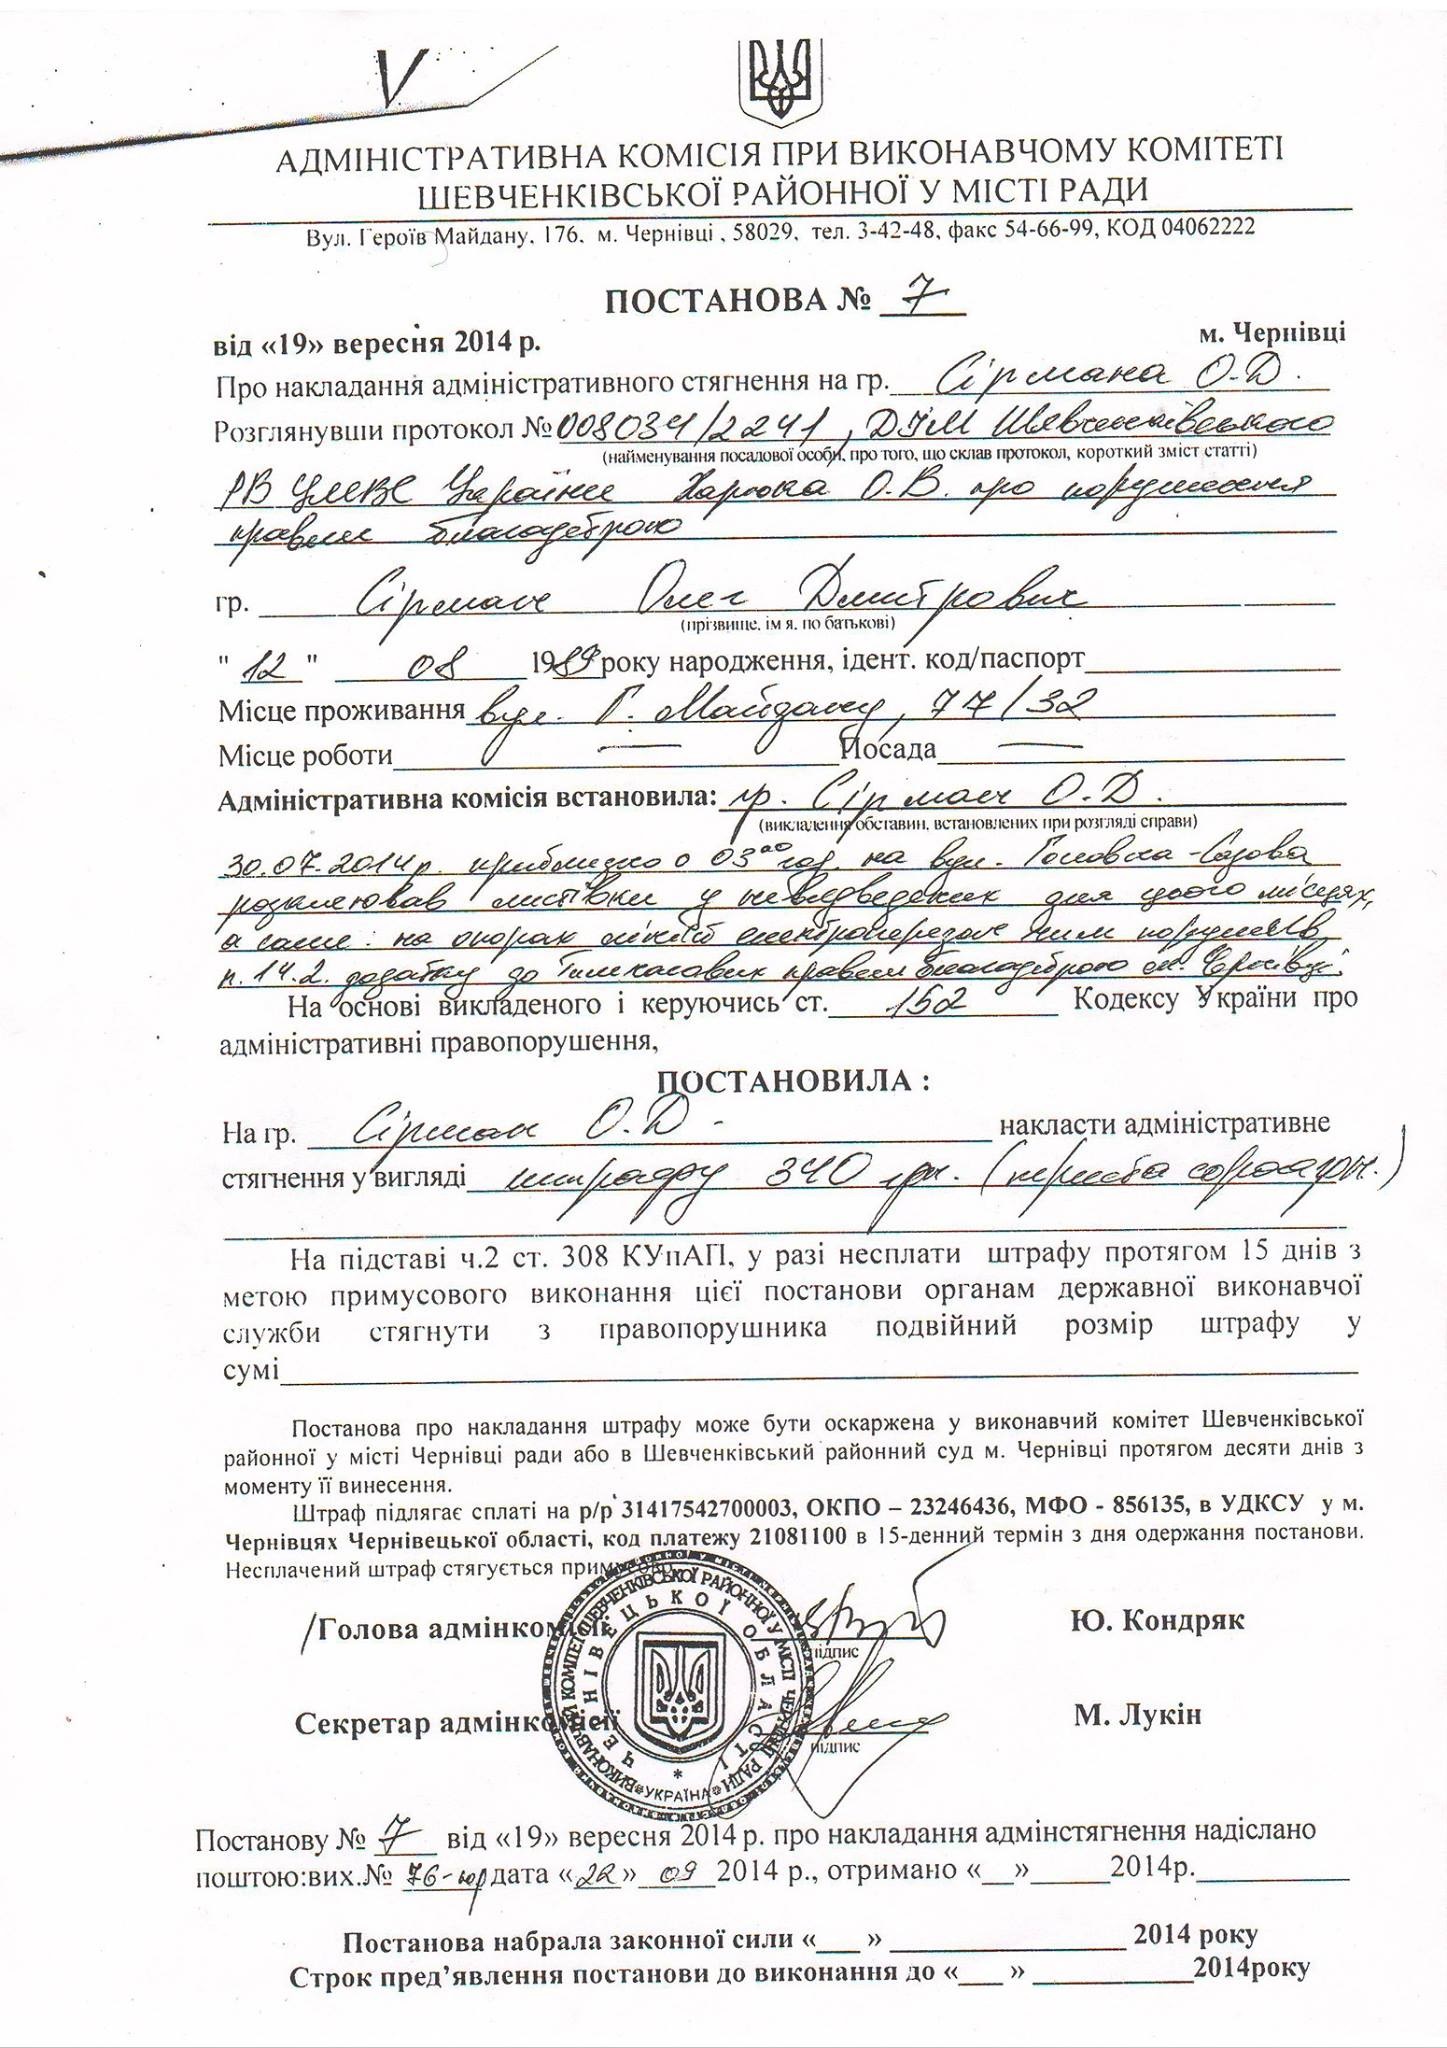 V
АДМІНІСТРАТИВНА КОМІСІЯ ПРИ ВИКОНАВЧОМУ КОМІТЕТІ
ШЕВЧЕНКІВСЬКОЇ РАЙОННОЇ У МІСТІ РАДИ
Вул. Героїв Майдану, 176, м. Чернівці , 58029, тел. 3-42-48, факс 54-66-99, КОД 04062222
ПОСТАНОВА № 7
від «19» вересня 2014 р. м. Чернівці
Про накладання адміністративного стягнення на гр. Сірмана О.Д.
Розглянувши протокол № 008034/2241, ДІМ Шевченківського
(найменування посадової особи, про того, що склав протокол, короткий зміст статті)
РВ УМВС України Харюка О.В. про порушення
правил благоустрою
гр. Сірман Олег Дмитрович
(прізвище, ім я, по батькові)
" 12 " 08 1989 року народження, ідент. код/паспорт
Місце проживання вул. Г. Майдану, 77/32
Місце роботи — Посада —
Адміністративна комісія встановила: гр. Сірман О.Д.
(викладення обставин, встановлених при розгляді справи)
30.07.2014 р. приблизно о 03 00 год. на вул. Головна-Садова
розклеював листівки у невідведених для цього місцях,
а саме: на опорах ліній електропередач чим порушив
п. 14.2. додатку до правил благоустрою м. Чернівці.
На основі викладеного і керуючись ст. 152 Кодексу України про
адміністративні правопорушення,
ПОСТАНОВИЛА :
На гр. Сірман О.Д. накласти адміністративне
стягнення у вигляді штрафу 340 грн. (триста сорок грн.)
На підставі ч.2 ст. 308 КУпАП, у разі несплати штрафу протягом 15 днів з
метою примусового виконання цієї постанови органам державної виконавчої
служби стягнути з правопорушника подвійний розмір штрафу у
сумі
Постанова про накладання штрафу може бути оскаржена у виконавчий комітет Шевченківської
районної у місті Чернівці ради або в Шевченківський районний суд м. Чернівці протягом десяти днів з
моменту її винесення.
Штраф підлягає сплаті на р/р 31417542700003, ОКПО – 23246436, МФО - 856135, в УДКСУ у м.
Чернівцях Чернівецької області, код платежу 21081100 в 15-денний термін з дня одержання постанови.
Несплачений штраф стягується примусово.
/Голова адмінкомісії Ю. Кондряк
підпис
Секретар адмінкомісії М. Лукін
підпис
ЧЕРНІВЕЦЬКОЇ ОБЛАСТІ
* УКРАЇНА *
Постанову № 7 від «19» вересня 2014 р. про накладання адмінстягнення надіслано
поштою:вих.№ 76-юр дата «22» 09 2014 р., отримано «__»_____2014р.
Постанова набрала законної сили «___ » 2014 року
Строк пред’явлення постанови до виконання до «___ » 2014року